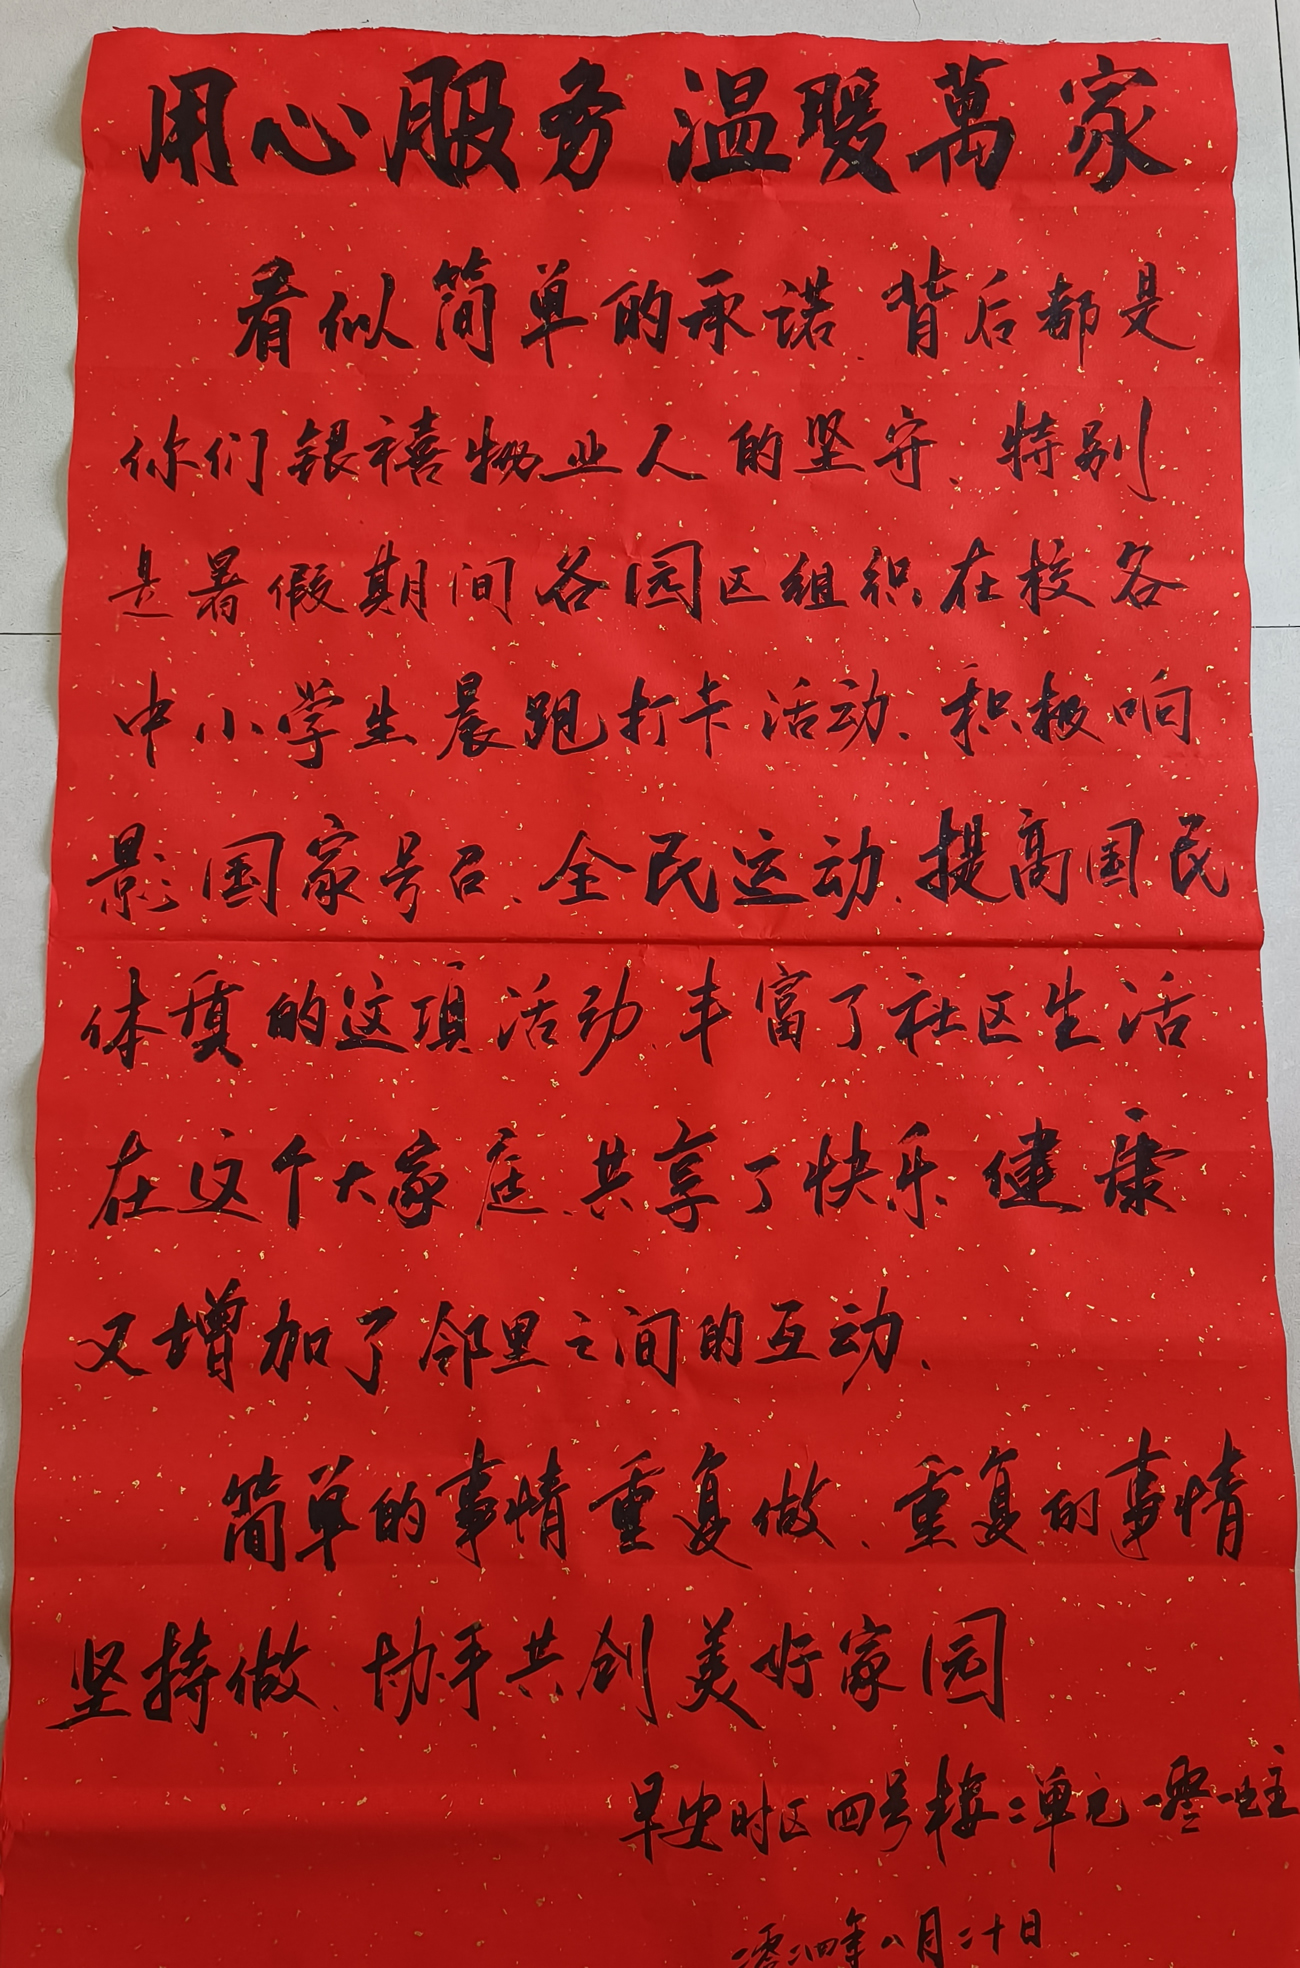 用心服务 温暖萬家
看似简单的承诺、背后都是
你们银禧物业人的坚守、特别
是暑假期间各园区组织在校各
中小学生晨跑打卡活动、积极响
影国家号召、全民运动、提高国民
体质的这项活动丰富了社区生活
在这个大家庭、共享了快乐健康
又增加了邻里之间的互动、
简单的事情重复做、重复的事情
坚持做、协手共创美好家园
早安时区四号楼二单元一零一业主
二零二四年八月二十日